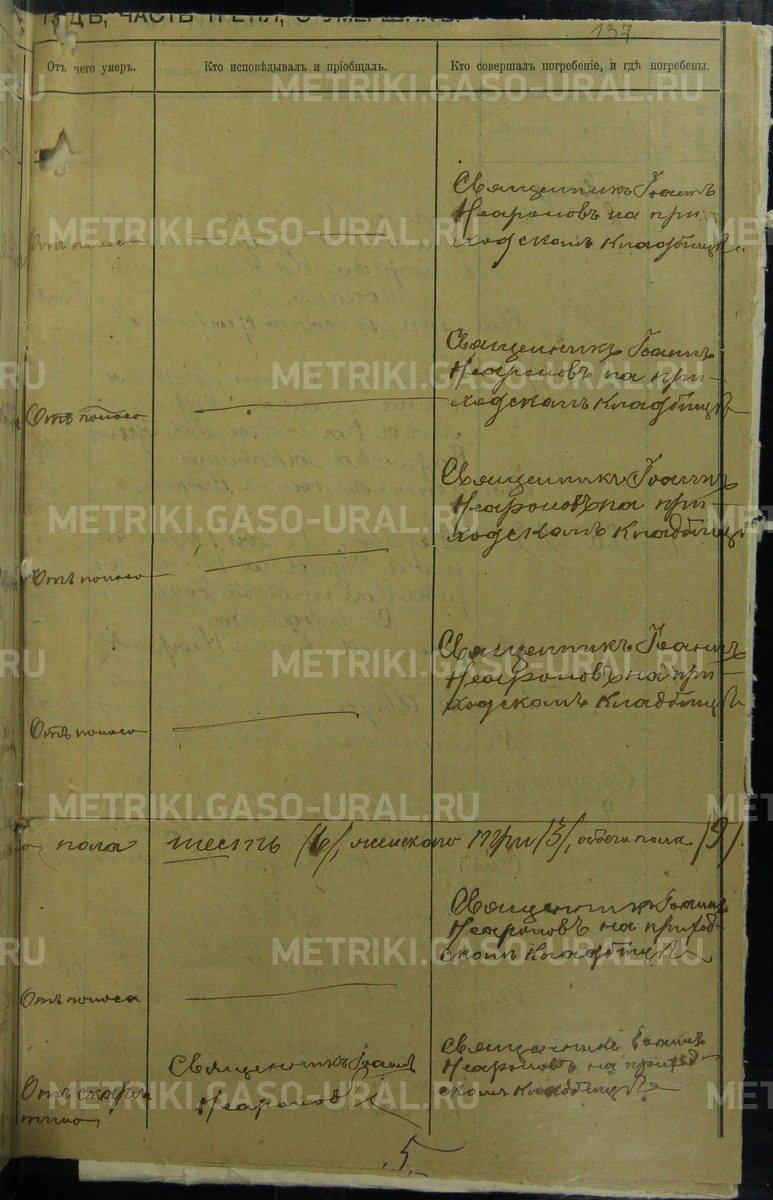 ГОДЪ, ЧАСТЬ ТРЕТІЯ, О УМЕРШИХЪ.
137
Отъ чего умеръ.
Кто исповѣдывалъ и пріобщалъ.
Кто совершалъ погребеніе, и гдѣ погребены.
Священникъ Іоаннъ
Неароновъ на при-
ходскомъ кладбищѣ.
Отъ поноса
Священникъ Іоаннъ
Неароновъ на при-
ходскомъ кладбищѣ
Отъ поноса
Священникъ Іоаннъ
Неароновъ на при-
ходскомъ кладбищѣ
Отъ поноса
Священникъ Іоаннъ
Неароновъ на при-
ходскомъ кладбищѣ
Отъ поноса
пола шесть /6/, женскаго три /3/, обоего пола /9/.
Священникъ Іоаннъ
Неароновъ на приход-
скомъ кладбищѣ
Отъ поноса
Священникъ Іоаннъ
Неароновъ
Священникъ Іоаннъ
Неароновъ на приход-
скомъ кладбищѣ
Отъ скарла-
тины
5
METRIKI.GASO-URAL.RU